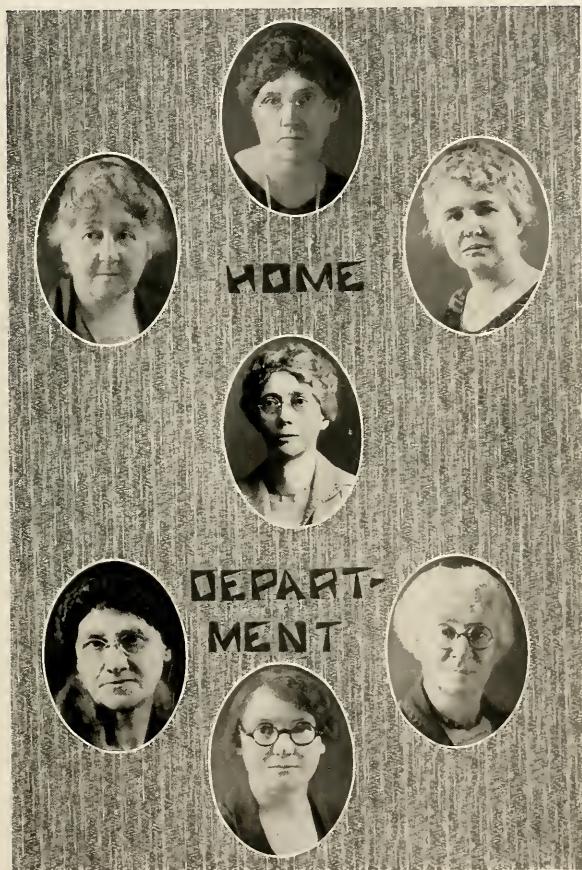 HOME
DEPART-
MENT